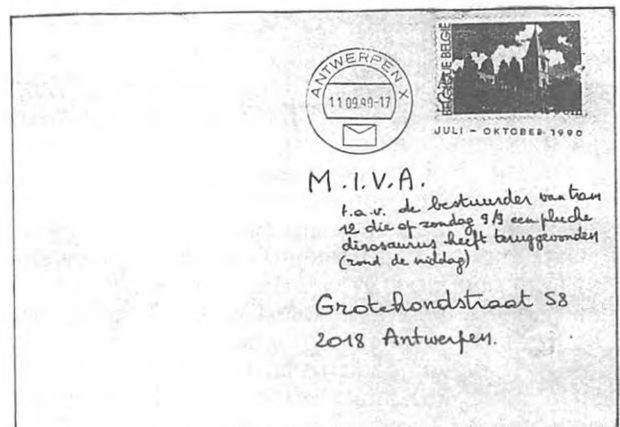 BELGIQUE BELGIË
ANTWERPEN X
11 09.90-17
JULI - OKTOBER 1990
M.I.V.A.
t.a.v. de bestuurder van tram
12 die op zondag 9/9 een pluche
dinosaurus heeft teruggevonden
(rond de middag)
Grotehondstraat 58
2018 Antwerpen.